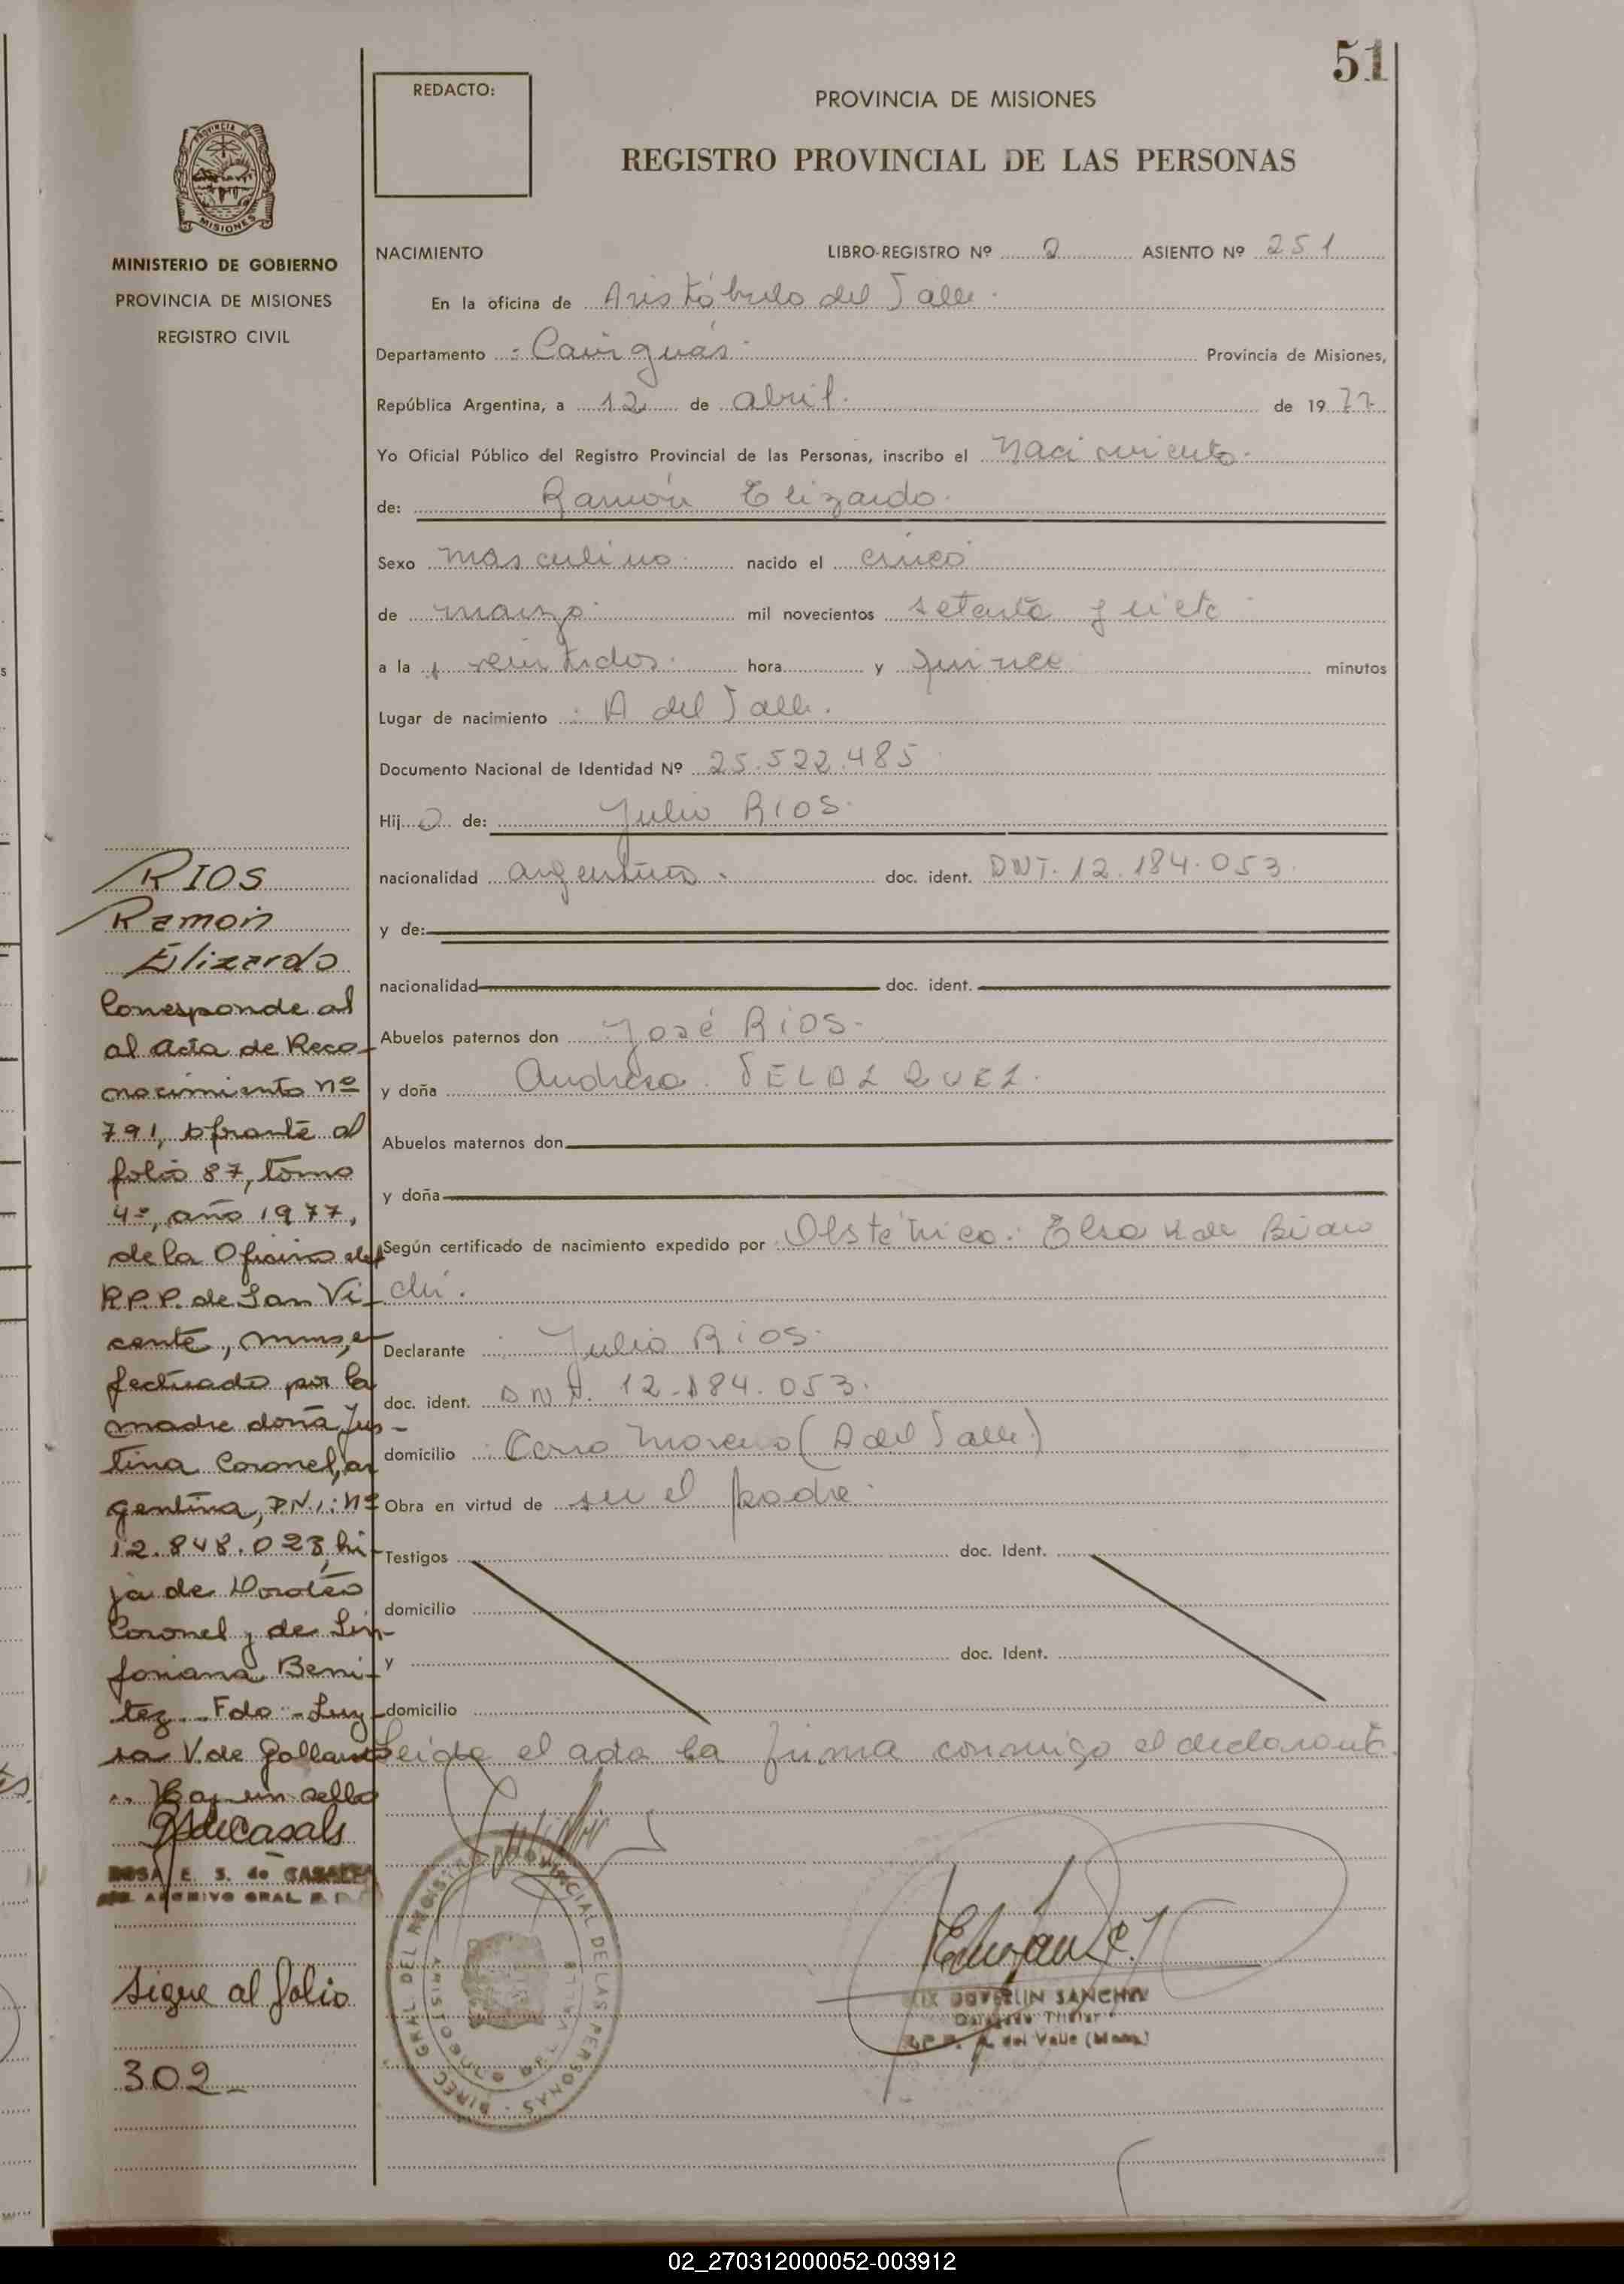 51
REDACTO:
PROVINCIA DE MISIONES
REGISTRO PROVINCIAL DE LAS PERSONAS
PROVINCIA DE
MISIONES
MINISTERIO DE GOBIERNO
PROVINCIA DE MISIONES
REGISTRO CIVIL
NACIMIENTO LIBRO-REGISTRO Nº 2 ASIENTO Nº 251
En la oficina de Aristóbulo del Valle.
Departamento Cainguás Provincia de Misiones,
República Argentina, a 12 de abril. de 1977
Yo Oficial Público del Registro Provincial de las Personas, inscribo el Nacimiento.
de: Ramón Elizardo.
Sexo masculino nacido el cinco
de marzo mil novecientos setenta y siete
a la s veintidos hora y quince minutos
Lugar de nacimiento A del Valle.
Documento Nacional de Identidad Nº 25.522.485
Hij o de: Julio RIOS.
nacionalidad argentino. doc. ident. DNI. 12.184.053.
y de:
nacionalidad doc. ident.
Abuelos paternos don José RIOS.
y doña Andresa VELAZQUEZ.
Abuelos maternos don
y doña
Según certificado de nacimiento expedido por Obstétrica: Elsa K de
chi.
Declarante Julio RIOS.
doc. ident. DNI. 12.184.053.
domicilio Cerro Moreno (A del Valle)
Obra en virtud de ser el padre.
Testigos doc. Ident.
domicilio
y doc. Ident.
domicilio
Leida el acta la firma conmigo el declarante.
RIOS
Ramón
Elizardo
Corresponde al
al acta de Reco-
nocimiento nº
791, obrante al
folio 87, tomo
4º, año 1977,
de la Oficina del
R.P.P. de San Vi-
cente, Mnes, e-
fectuado por la
madre doña Jus-
tina Coronel, ar
gentina, D.N.I. Nº
12.848.023, hi-
ja de Doroteo
Coronel y de Sin-
foriana Beni-
tez. Fdo: Luz
V. de
Hay un sello
ROSA E. S. de CASALS
ARCHIVO GRAL.
Sigue al folio
302
DIREC. GRAL. DEL REGISTRO PROVINCIAL DE LAS PERSONAS
SANCHEZ
Delegado Titular
R.P.P. A. del Valle (Mnes.)
02_270312000052-003912